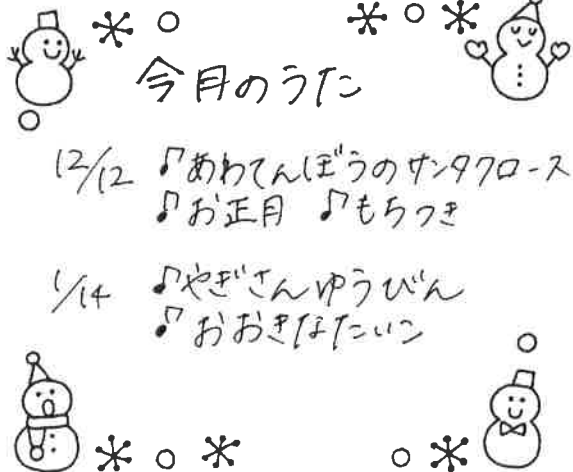 今月のうた
12/12 ♪あわてんぼうのサンタクロース
♪お正月 ♪もちつき
1/14 ♪やぎさんゆうびん
♪おおきなたいこ